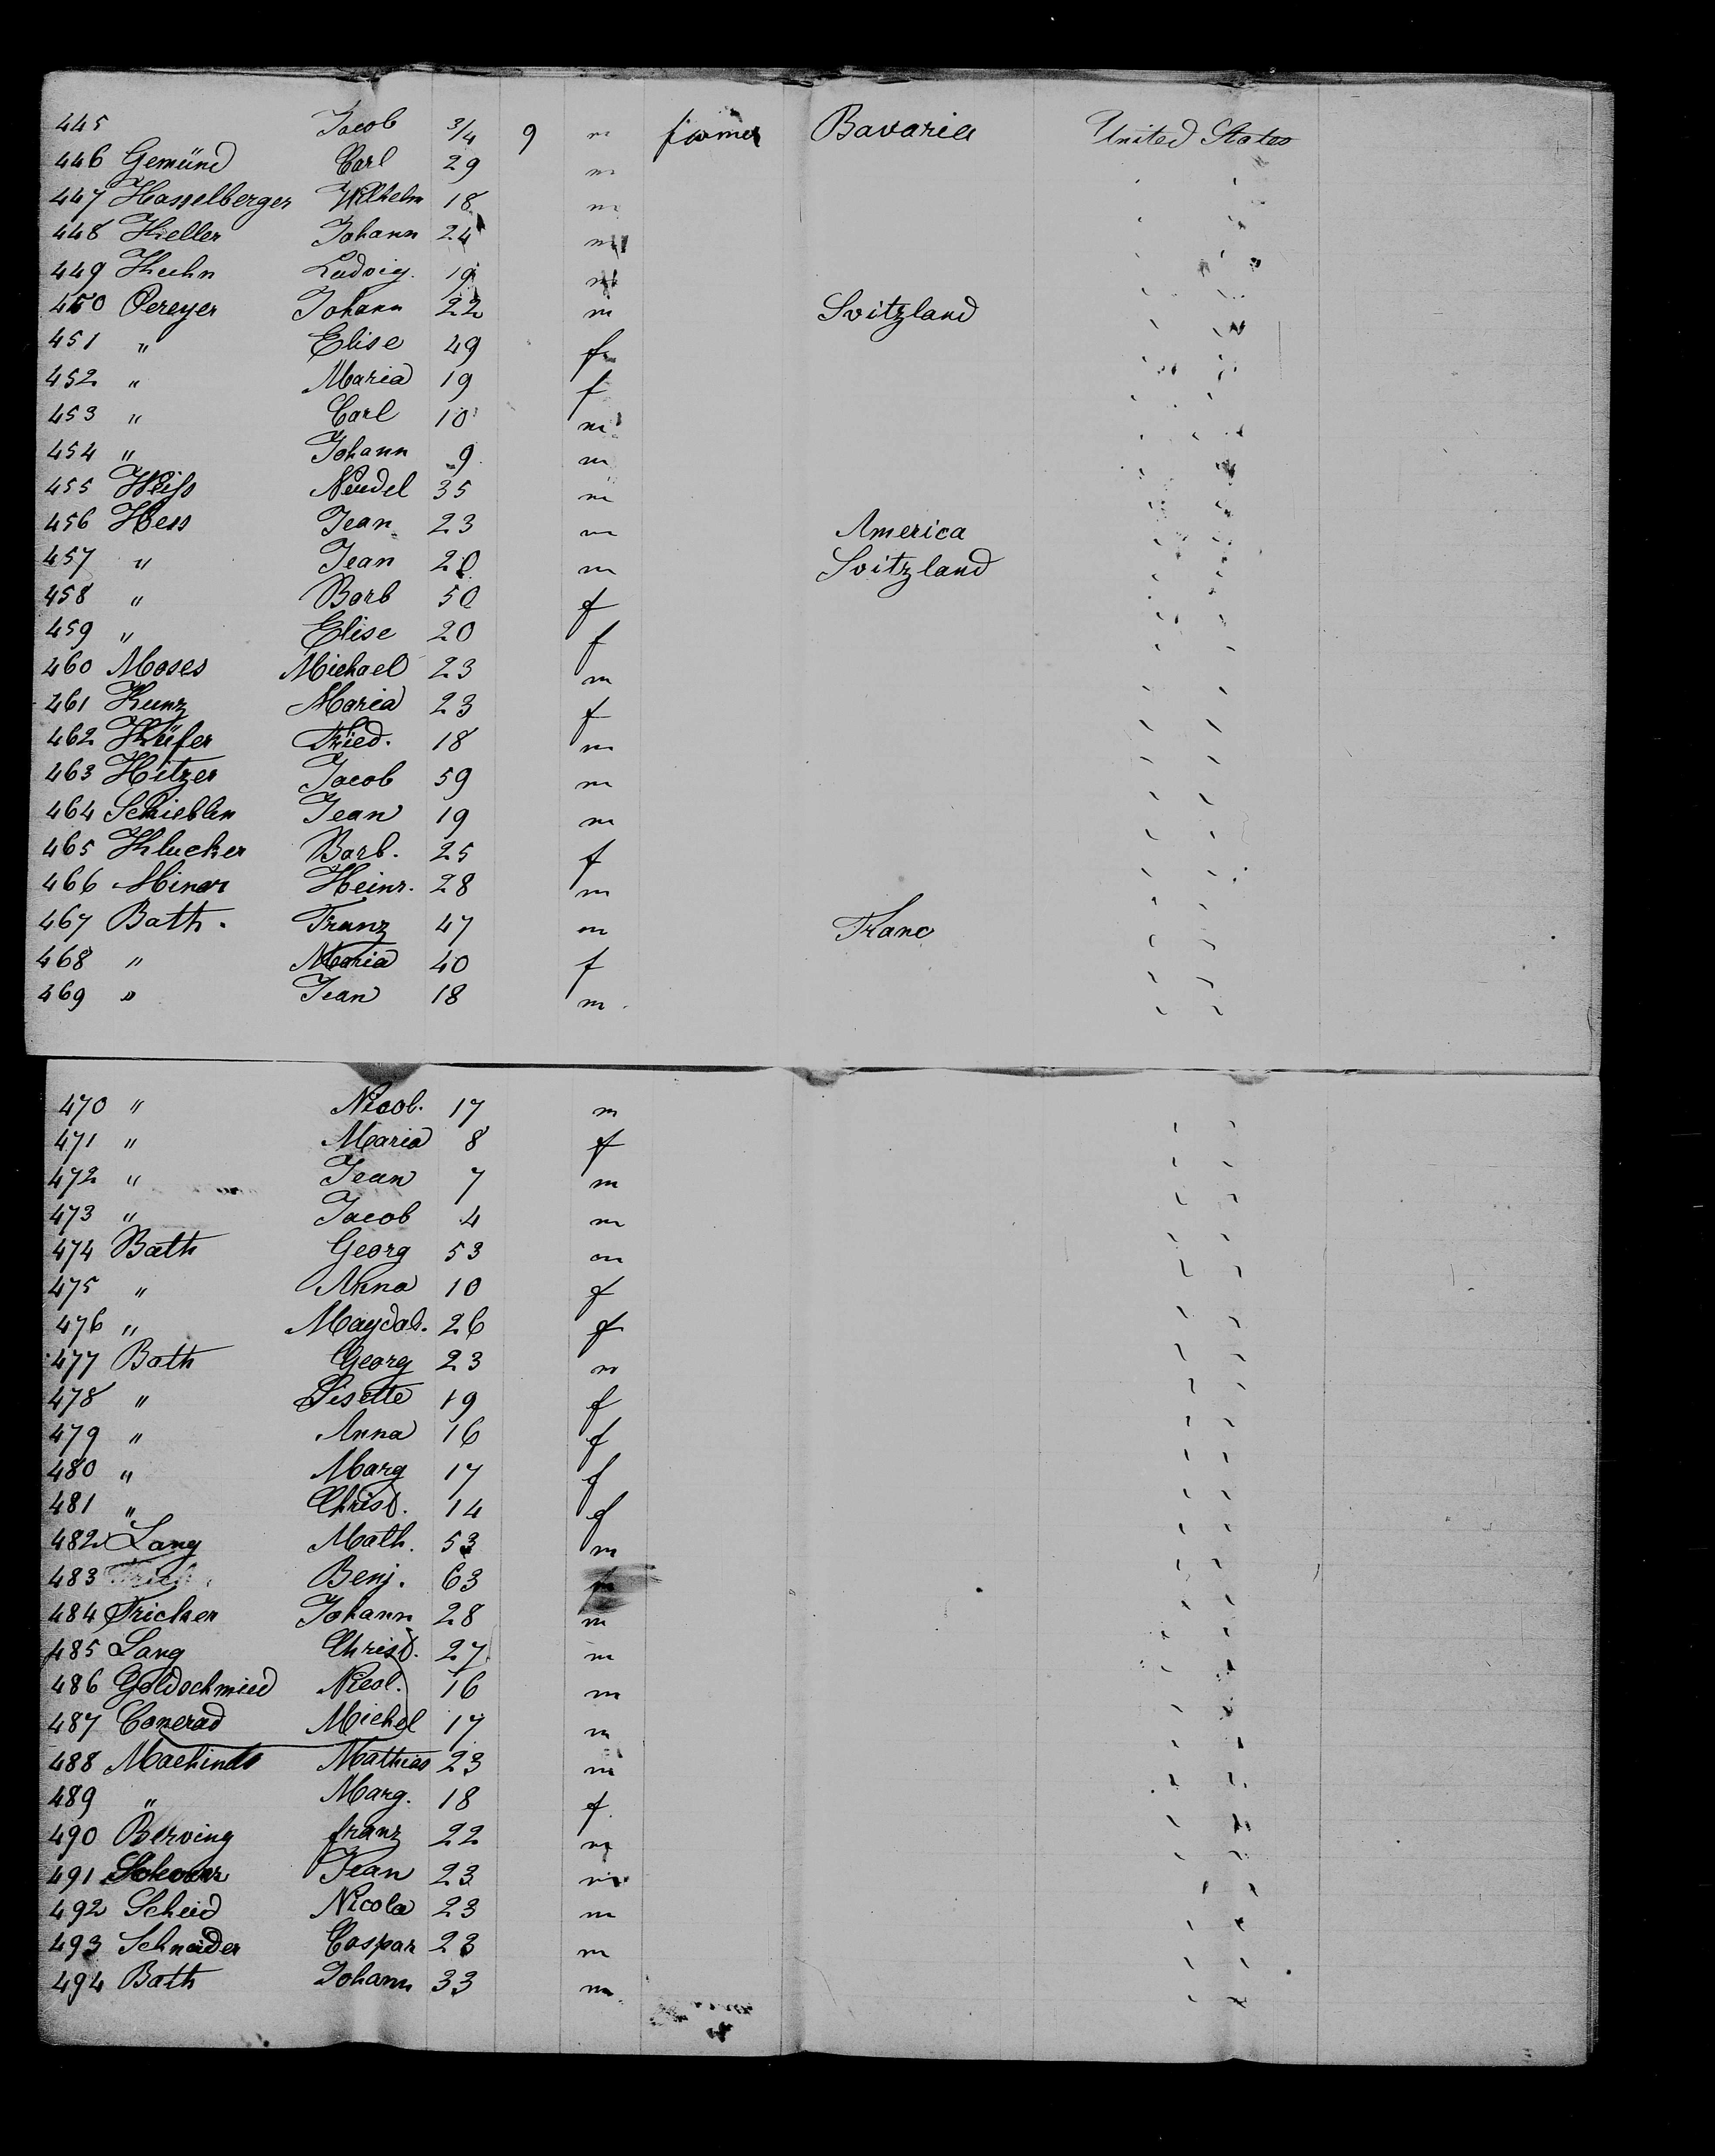 445 Jacob 3/4 9 m farmer Bavaria United States
446 Gemünd Carl 29 m
447 Hasselberger Wilhelm 18 m
448 Keller Johann 24 m
449 Kuhn Ludvig. 19 m
450 Pereyer Johann 22 m Svitzland
451 " Elise 49 f
452 " Maria 19 f
453 " Carl 10 m
454 " Johann 9 m
455 Weiss Neudel 35 m
456 Hess Jean 23 m America
457 " Jean 20 m Svitzland
458 " Barb 50 f
459 " Elise 20 f
460 Moses Michael 23 m
461 Kunz Maria 23 f
462 Küfer Fried. 18 m
463 Hitzer Jacob 59 m
464 Jean 19 m
465 Klucker Barb. 25 f
466 Minor Heinr. 28 m
467 Bath. Franz 47 m Franc
468 " Maria 40 f
469 " Jean 18 m
470 " Nicol. 17 m
471 " Maria 8 f
472 " Jean 7 m
473 " Jacob 4 m
474 Bath Georg 53 m
475 " Anna 10 f
476 " Magdal. 26 f
477 Bath Georg 23 m
478 " Lisette 19 f
479 " Anna 16 f
480 " Marg 17 f
481 " Christ. 14 f
482 Lang Math. 53 m
483 Benj. 63
484 Fricker Johann 28 m
485 Lang Christ. 27 m
486 Goldschmied Nicol. 16 m
487 Conerad Michel 17 m
488 Mathias 23 m
489 " Marg. 18 f
490 Berving franz 22 m
491 Jean 23 m
492 Scheid Nicola 23 m
493 Schneider Caspar 23 m
494 Bath Johann 33 m